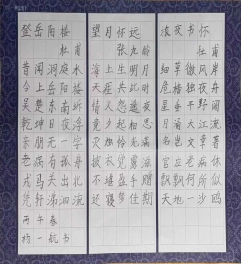 登岳阳楼
杜甫
昔闻洞庭水
今上岳阳楼
吴楚东南坼
乾坤日夜浮
亲朋无一字
老病有孤舟
戎马关山北
凭轩涕泗流
丙午春
一航书
望月怀远
张九龄
海上生明月
天涯共此时
情人怨遥夜
竟夕起相思
灭烛怜光满
披衣觉露滋
不堪盈手赠
还寝梦佳期
旅夜书怀
杜甫
细草微风岸
危樯独夜舟
星垂平野阔
月涌大江流
名岂文章著
官应老病休
飘飘何所似
天地一沙鸥